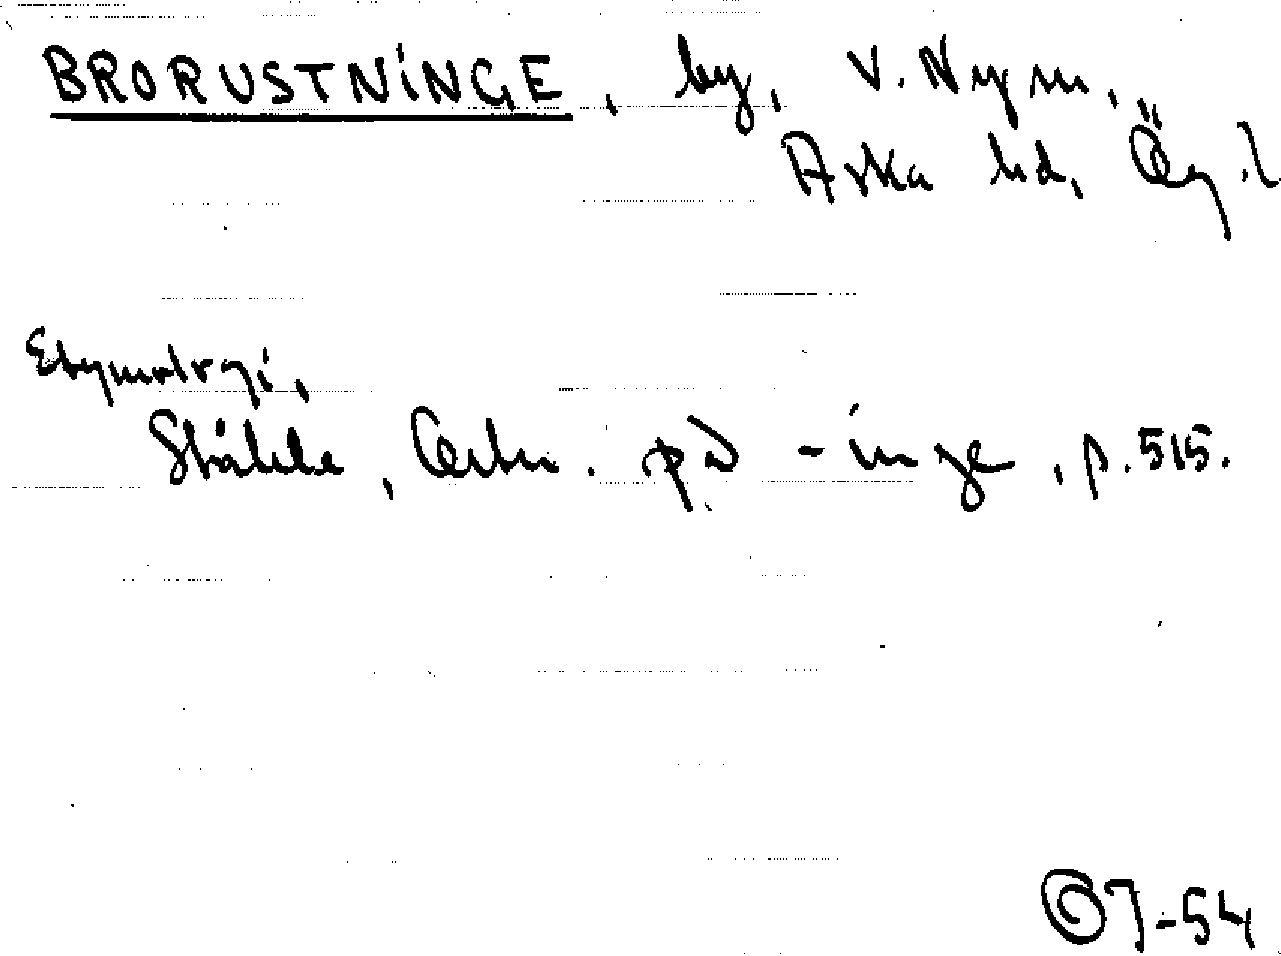 BRORUSTNINGE, by, V. Ny sn,
Aska hd, Ög. l
Etymologi,
Ståhle, Ortn. på -inge, p. 515.
-54